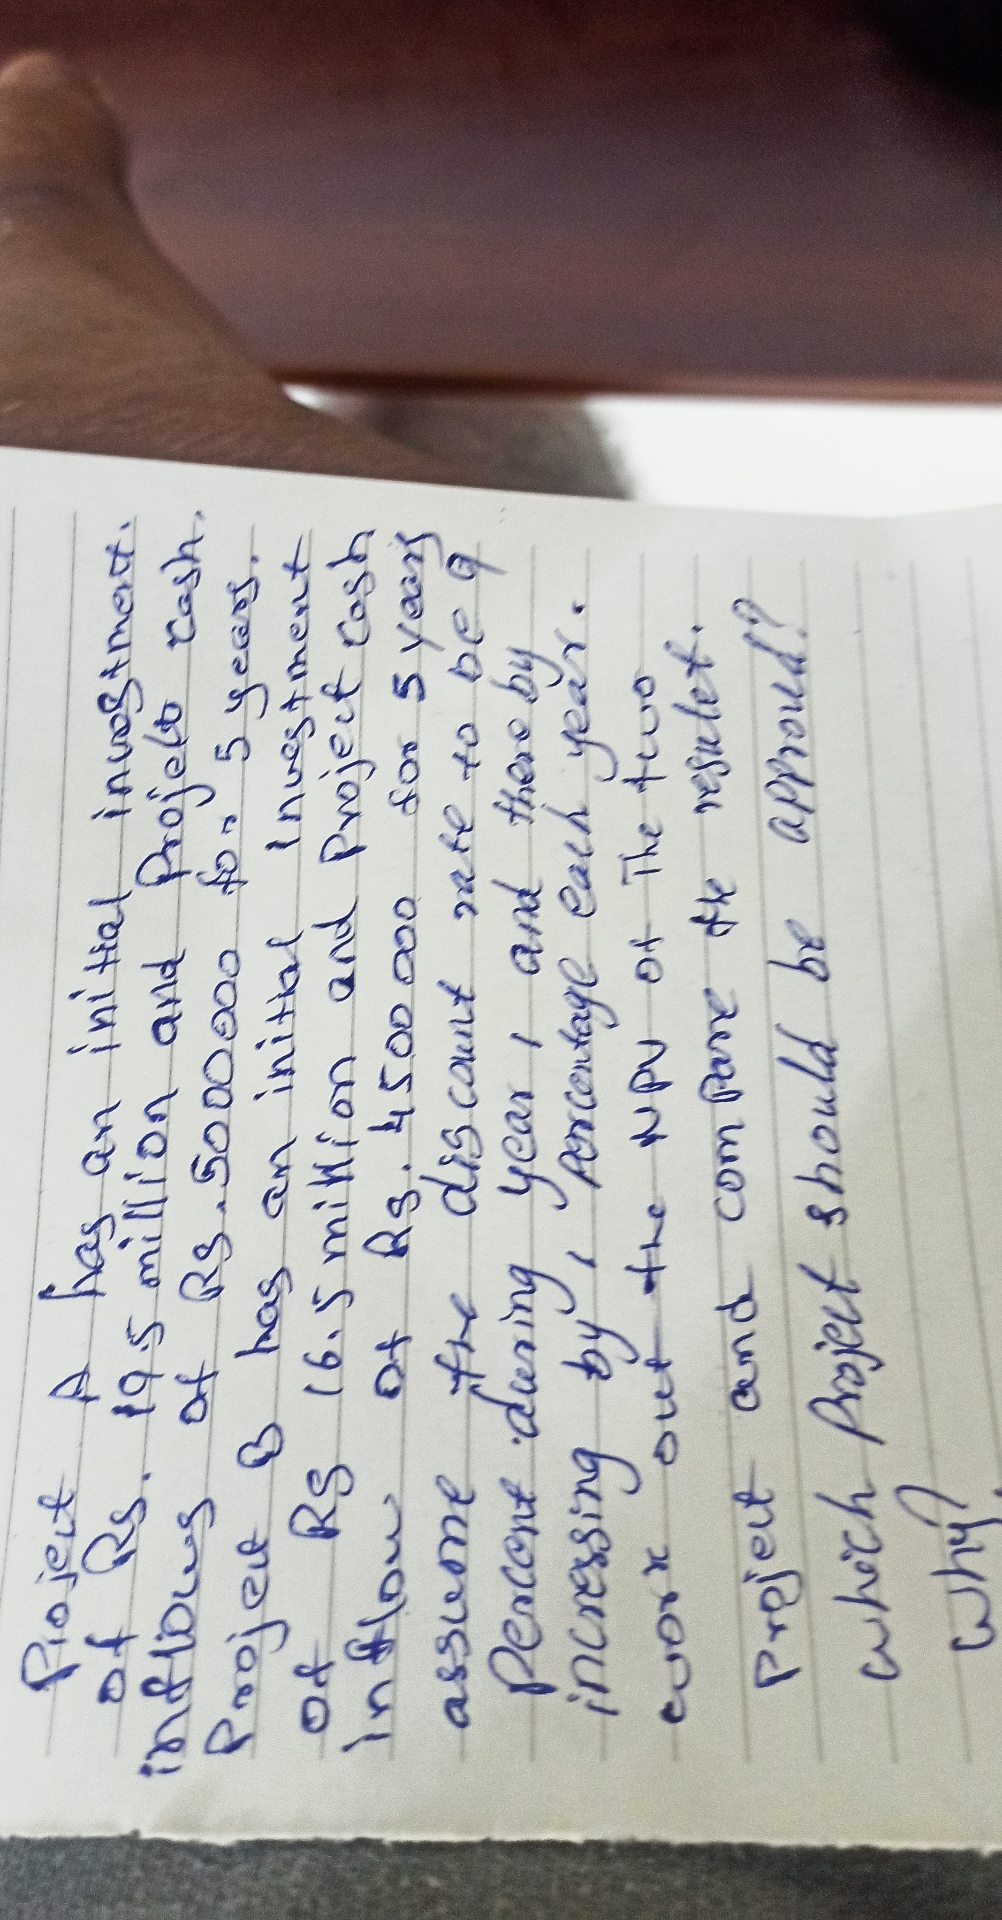 Project A has an initial invostment.
of Rs. 19.5 million and Projebt cash.
inflows of Rs. 5000000 for 5 years.
Project B has an initial Investment
of Rs 16.5 million and Project cash
inflow of Rs. 4500000 for 5 years
assume the discount rate to be 9
Percent during year 1 and there by
incressing by 1 percentage each year.
work out the NPV of The two
Project and compare the resulet.
which Project should be approud?
Why?